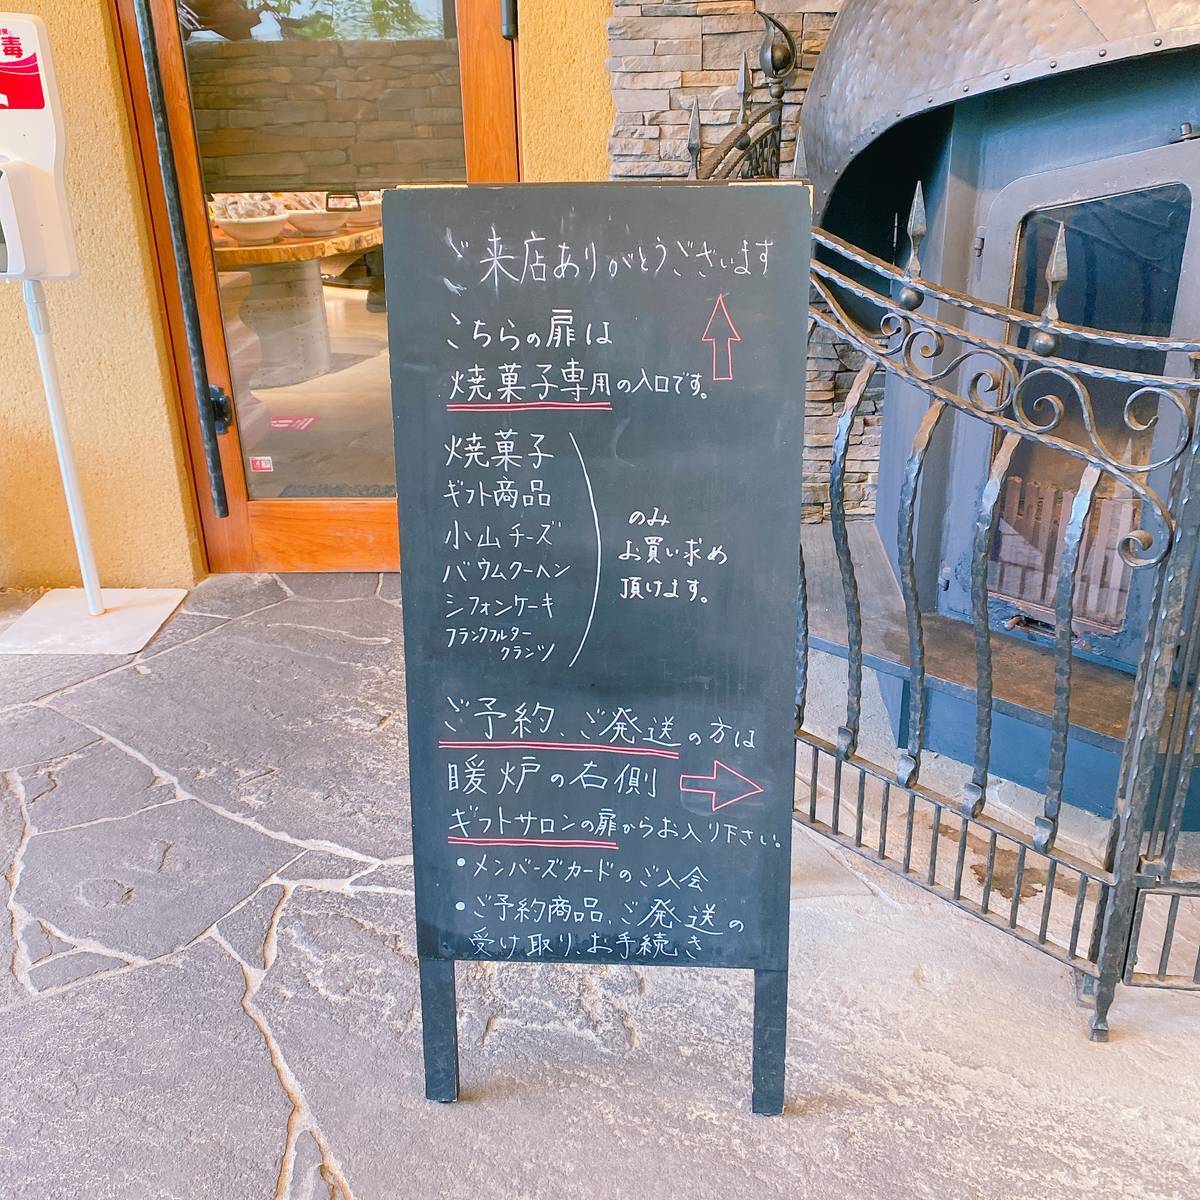 毒
ご来店ありがとうございます
こちらの扉は
焼菓子専用の入口です。
焼菓子
ギフト商品
小山チーズ
バウムクーヘン
シフォンケーキ
フランクフルター
クランツ
のみ
お買い求め
頂けます。
ご予約、ご発送の方は
暖炉の右側
ギフトサロンの扉からお入り下さい。
•メンバーズカードのご入会
•ご予約商品、ご発送の
受け取り、お手続き